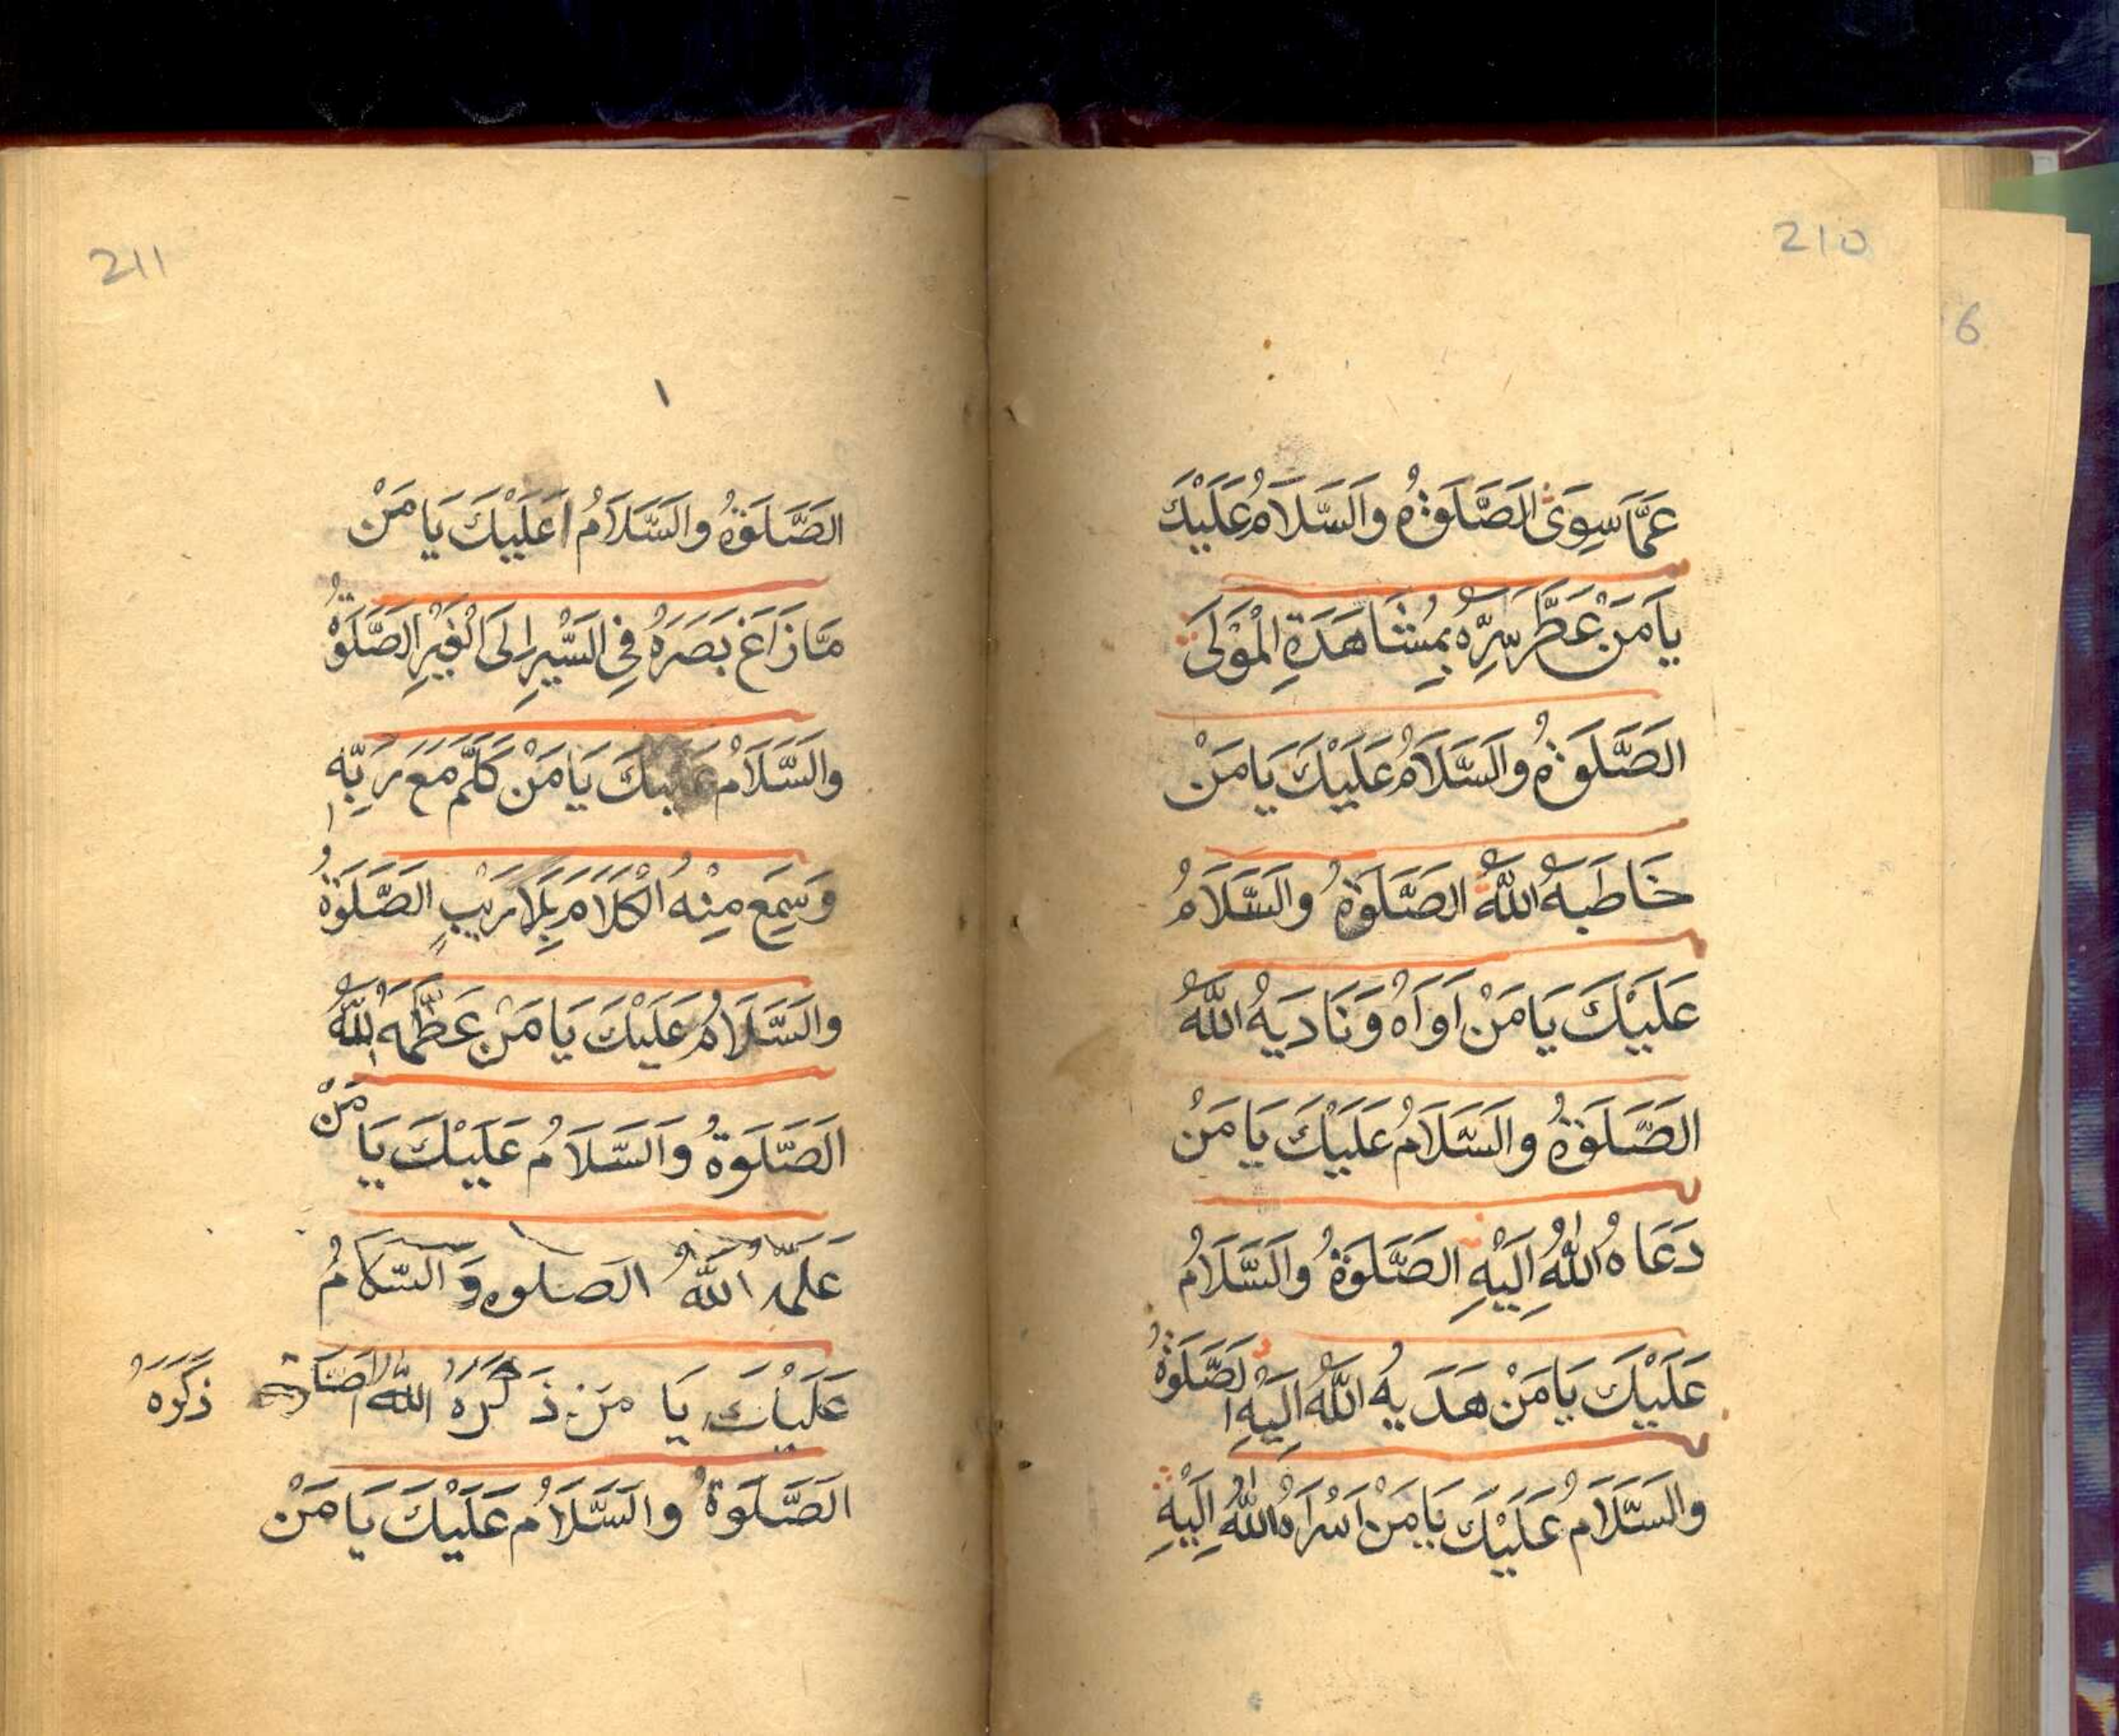 210
6
عَمَّا سِوَی الصَّلَوةُ وَالسَّلَامُ عَلَيْكَ
يَا مَنْ عَطَّرَ سِرَّهُ بِمُشَاهَدَةِ الْمَوْلَى
الصَّلَوةُ وَالسَّلَامُ عَلَيْكَ يَا مَنْ
خَاطَبَهُ اللّٰهُ الصَّلَوةُ وَالسَّلَامُ
عَلَيْكَ يَا مَنْ اَوَاهُ وَنَادَيهُ اللّٰهُ
الصَّلَوةُ وَالسَّلَامُ عَلَيْكَ يَا مَنْ
دَعَاهُ اللّٰهُ اِلَيْهِ الصَّلَوةُ وَالسَّلَامُ
عَلَيْكَ يَا مَنْ هَدَيهُ اللّٰهُ اِلَيْهِ الصَّلَوةُ
وَالسَّلَامُ عَلَيْكَ يَا مَنْ اَسْرَاهُ اللّٰهُ اِلَيْهِ
211
الصَّلَوةُ وَالسَّلَامُ عَلَيْكَ يَا مَنْ
مَا زَاغَ بَصَرَهُ فِي السَّيْرِ اِلَى الْغَيْرِ الصَّلَوةُ
وَالسَّلَامُ عَلَيْكَ يَا مَنْ كَلَّمَ مَعَ رَبِّهِ
وَسَمِعَ مِنْهُ الْكَلَامَ بِلَا رَيْبٍ الصَّلَوةُ
وَالسَّلَامُ عَلَيْكَ يَا مَنْ عَظَّمَهُ اللّٰهُ
الصَّلَوةُ وَالسَّلَامُ عَلَيْكَ يَا مَنْ
عَلَّمَهُ اللّٰهُ الصلوه وَالسَّلَامُ
عَلَيْكَ يَا مَنْ ذَكَرَهُ اللّٰهُ ذَكَرَهُ
الصَّلَوةُ وَالسَّلَامُ عَلَيْكَ يَا مَنْ